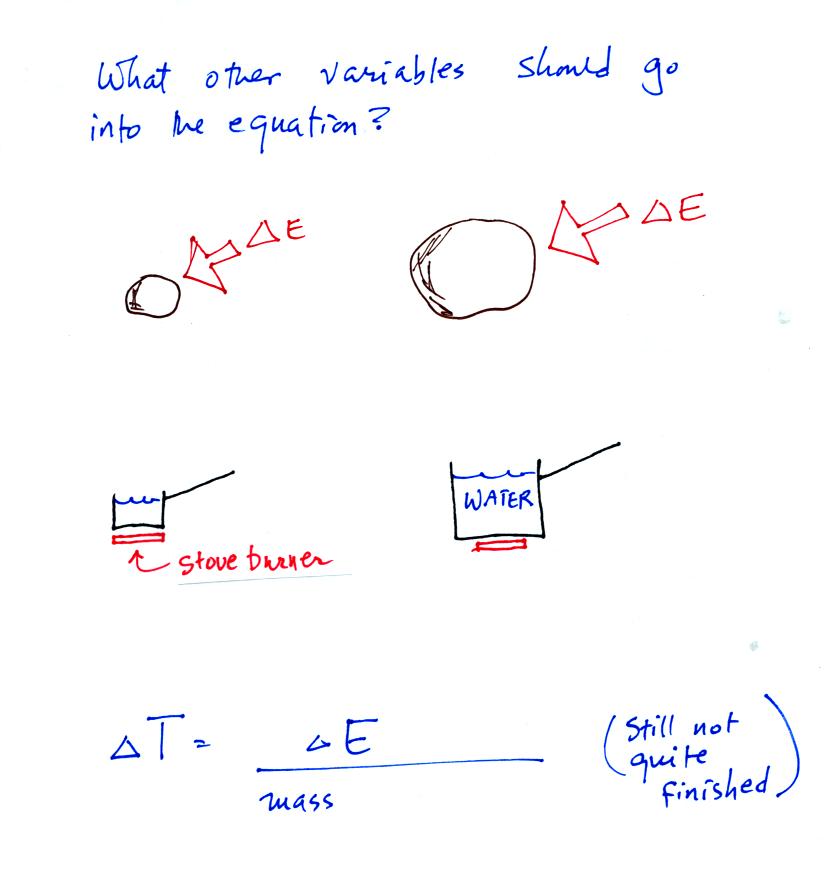 What other variables should go
into the equation?
ΔE
ΔE
WATER
stove burner
ΔT = ΔE
mass
(Still not
quite
finished)